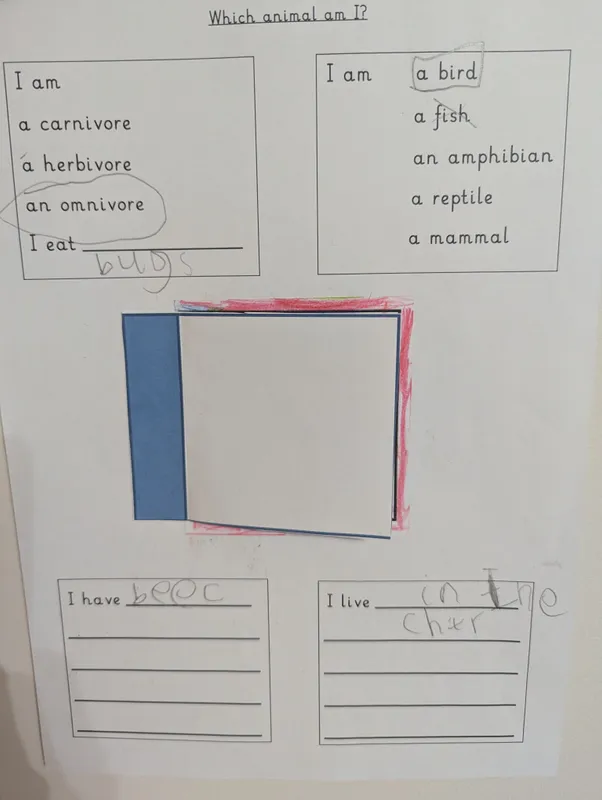 Which animal am I?
I am
a carnivore
a herbivore
an omnivore
I eat
bugs
I am a bird
a fish
an amphibian
a reptile
a mammal
I have
I live in the